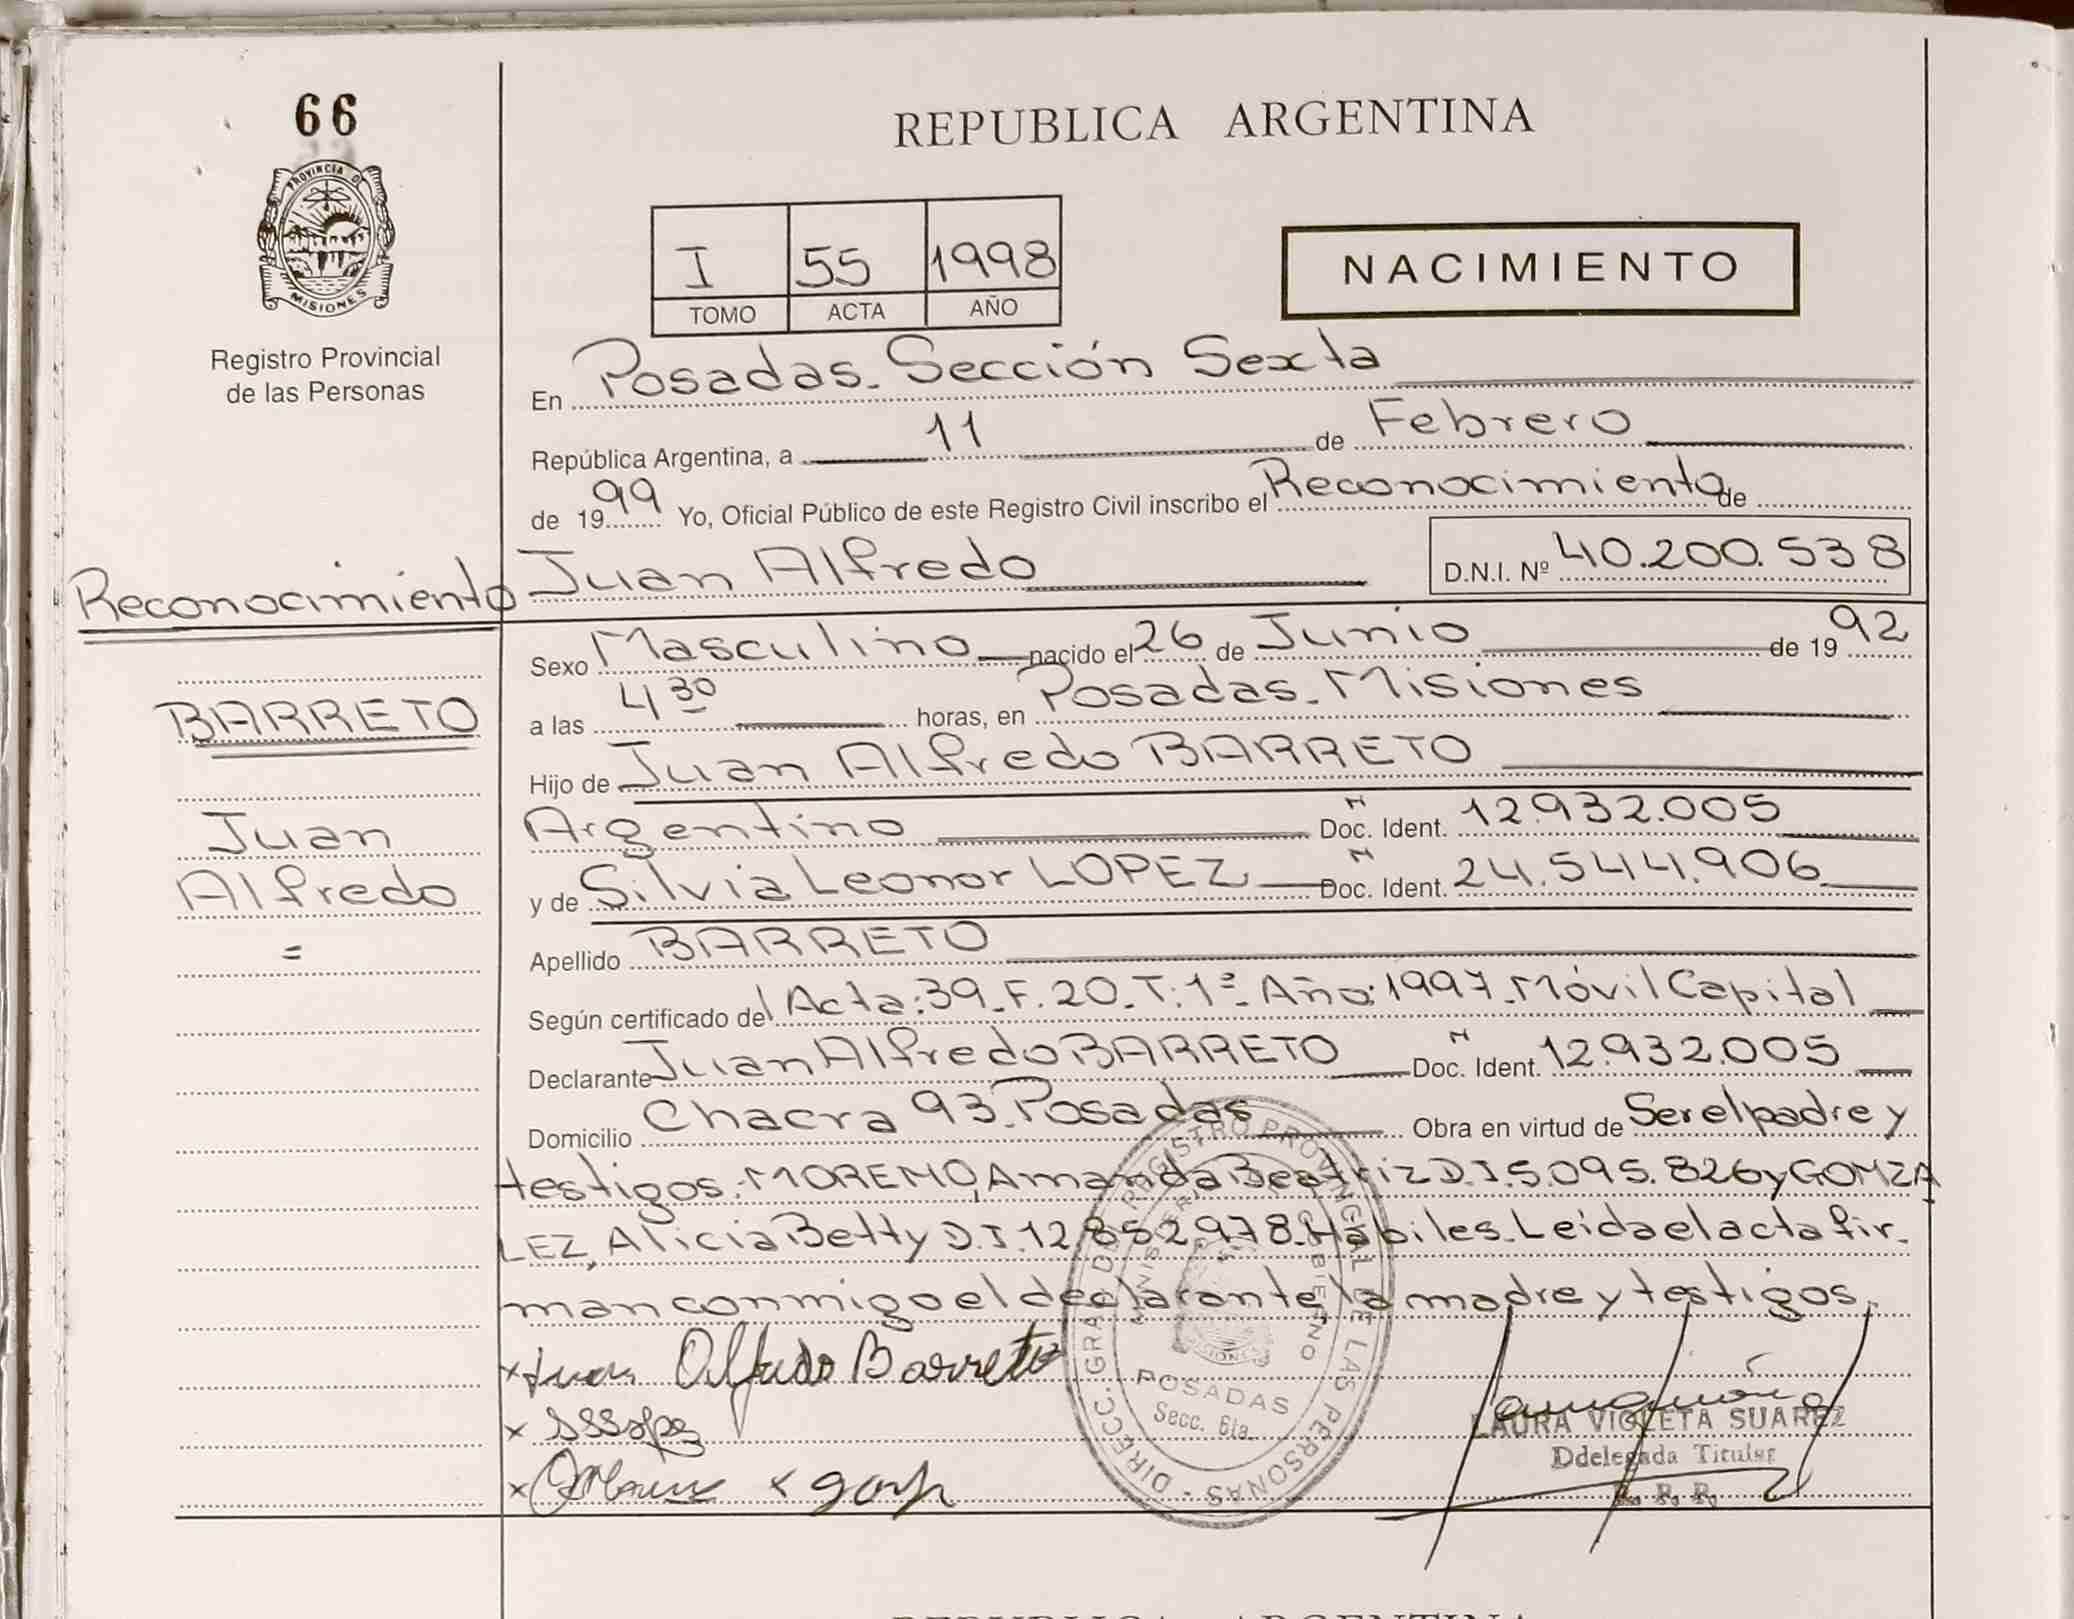 66
REPUBLICA ARGENTINA
PROVINCIA DE
MISIONES
Registro Provincial
de las Personas
I 55 1998
TOMO ACTA AÑO
NACIMIENTO
En Posadas. Sección Sexta
República Argentina, a 11 de Febrero
de 1999 Yo, Oficial Público de este Registro Civil inscribo el Reconocimiento de
Juan Alfredo D.N.I. Nº 40.200.538
Reconocimiento
BARRETO
Juan
Alfredo
=
Sexo Masculino nacido el 26 de Junio de 1992
a las 4 30 horas, en Posadas. Misiones
Hijo de Juan Alfredo BARRETO
Argentino Doc. Ident. 12.932.005
y de Silvia Leonor LOPEZ Doc. Ident. 24.544.906
Apellido BARRETO
Según certificado del Acta: 39. F. 20. T: 1º. Año: 1997. Móvil Capital
Declarante Juan Alfredo BARRETO Doc. Ident. 12.932.005
Domicilio Chacra 93. Posadas Obra en virtud de Ser el padre y
testigos: MORENO, Amanda Beatriz D.I. 5.095.826 y GONZA
LEZ, Alicia Betty D.I. 12.852.978. Hábiles. Leída el acta fir-
man conmigo el declarante, la madre y testigos.
x Juan Alfredo Barreto
x
x x
DIRECC. GRAL DEL REGISTRO PROVINCIAL DE LAS PERSONAS
MINISTERIO GOBIERNO
MISIONES
POSADAS
Secc. 6ta.
LAURA VIOLETA SUAREZ
Ddelegada Titular
R. P. P.
REPUBLICA ARGENTINA